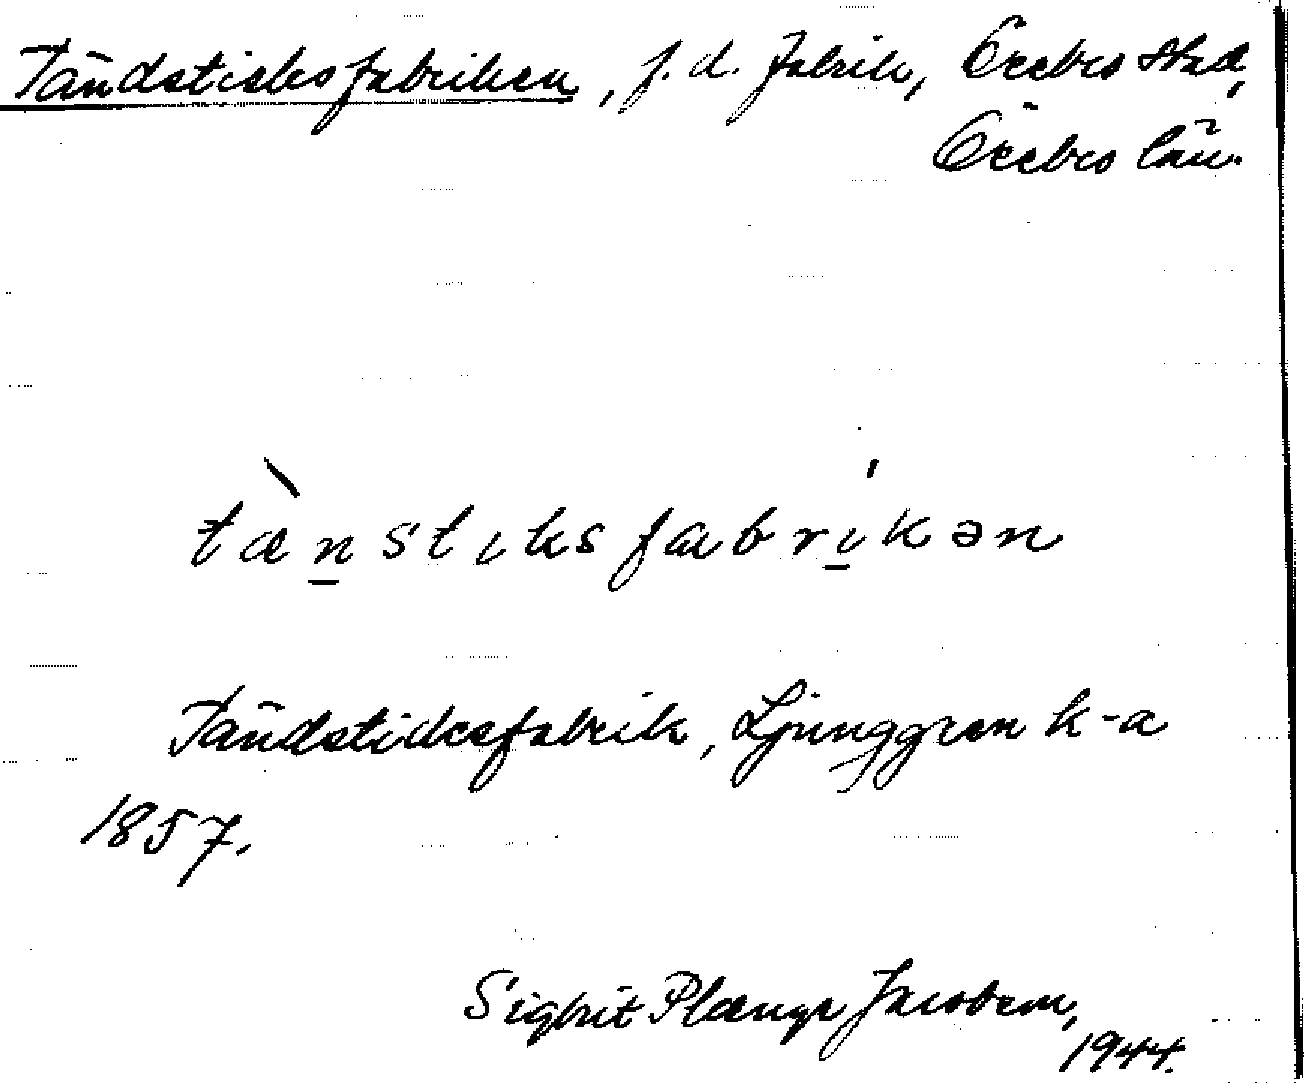 Tändsticksfabriken, f. d. fabrik, Örebro stad,
Örebro län.
tæ̀nstiksfabríkən
Tändsticksfabrik, Ljunggren k-a
1857.
Sigbrit Plænge Jacobson,
1944.